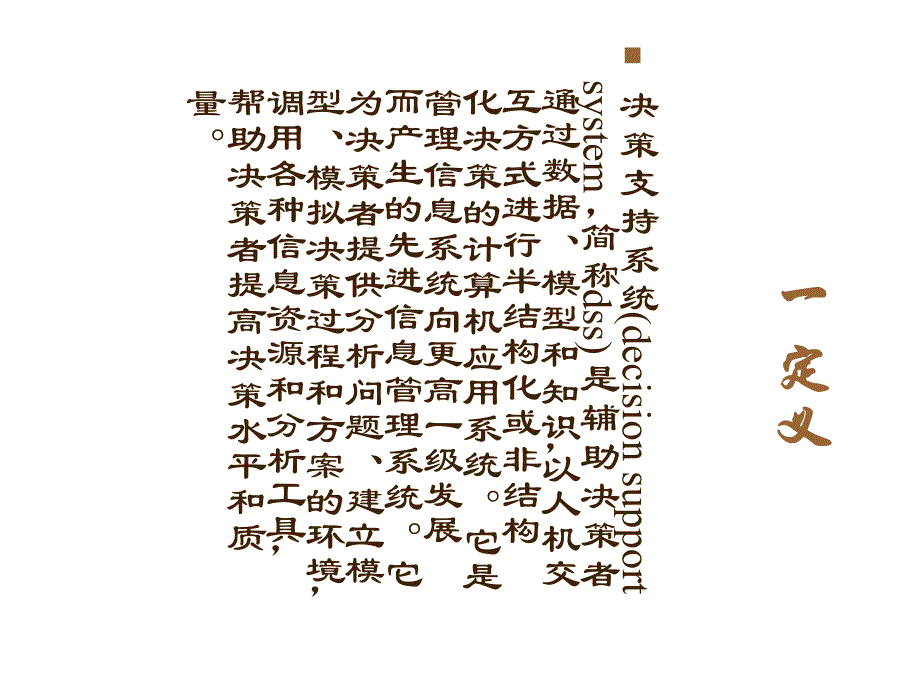 一 定义
■ 决策支持系统(decision support
system，简称dss)是辅助决策者
通过数据、模型和知识,以人机交
互方式进行半结构化或非结构
化决策的计算机应用系统。它是
管理信息系统向更高一级发展
而产生的先进信息管理系统。它
为决策者提供分析问题、建立模
型、模拟决策过程和方案的环境,
调用各种信息资源和分析工具,
帮助决策者提高决策水平和质
量。